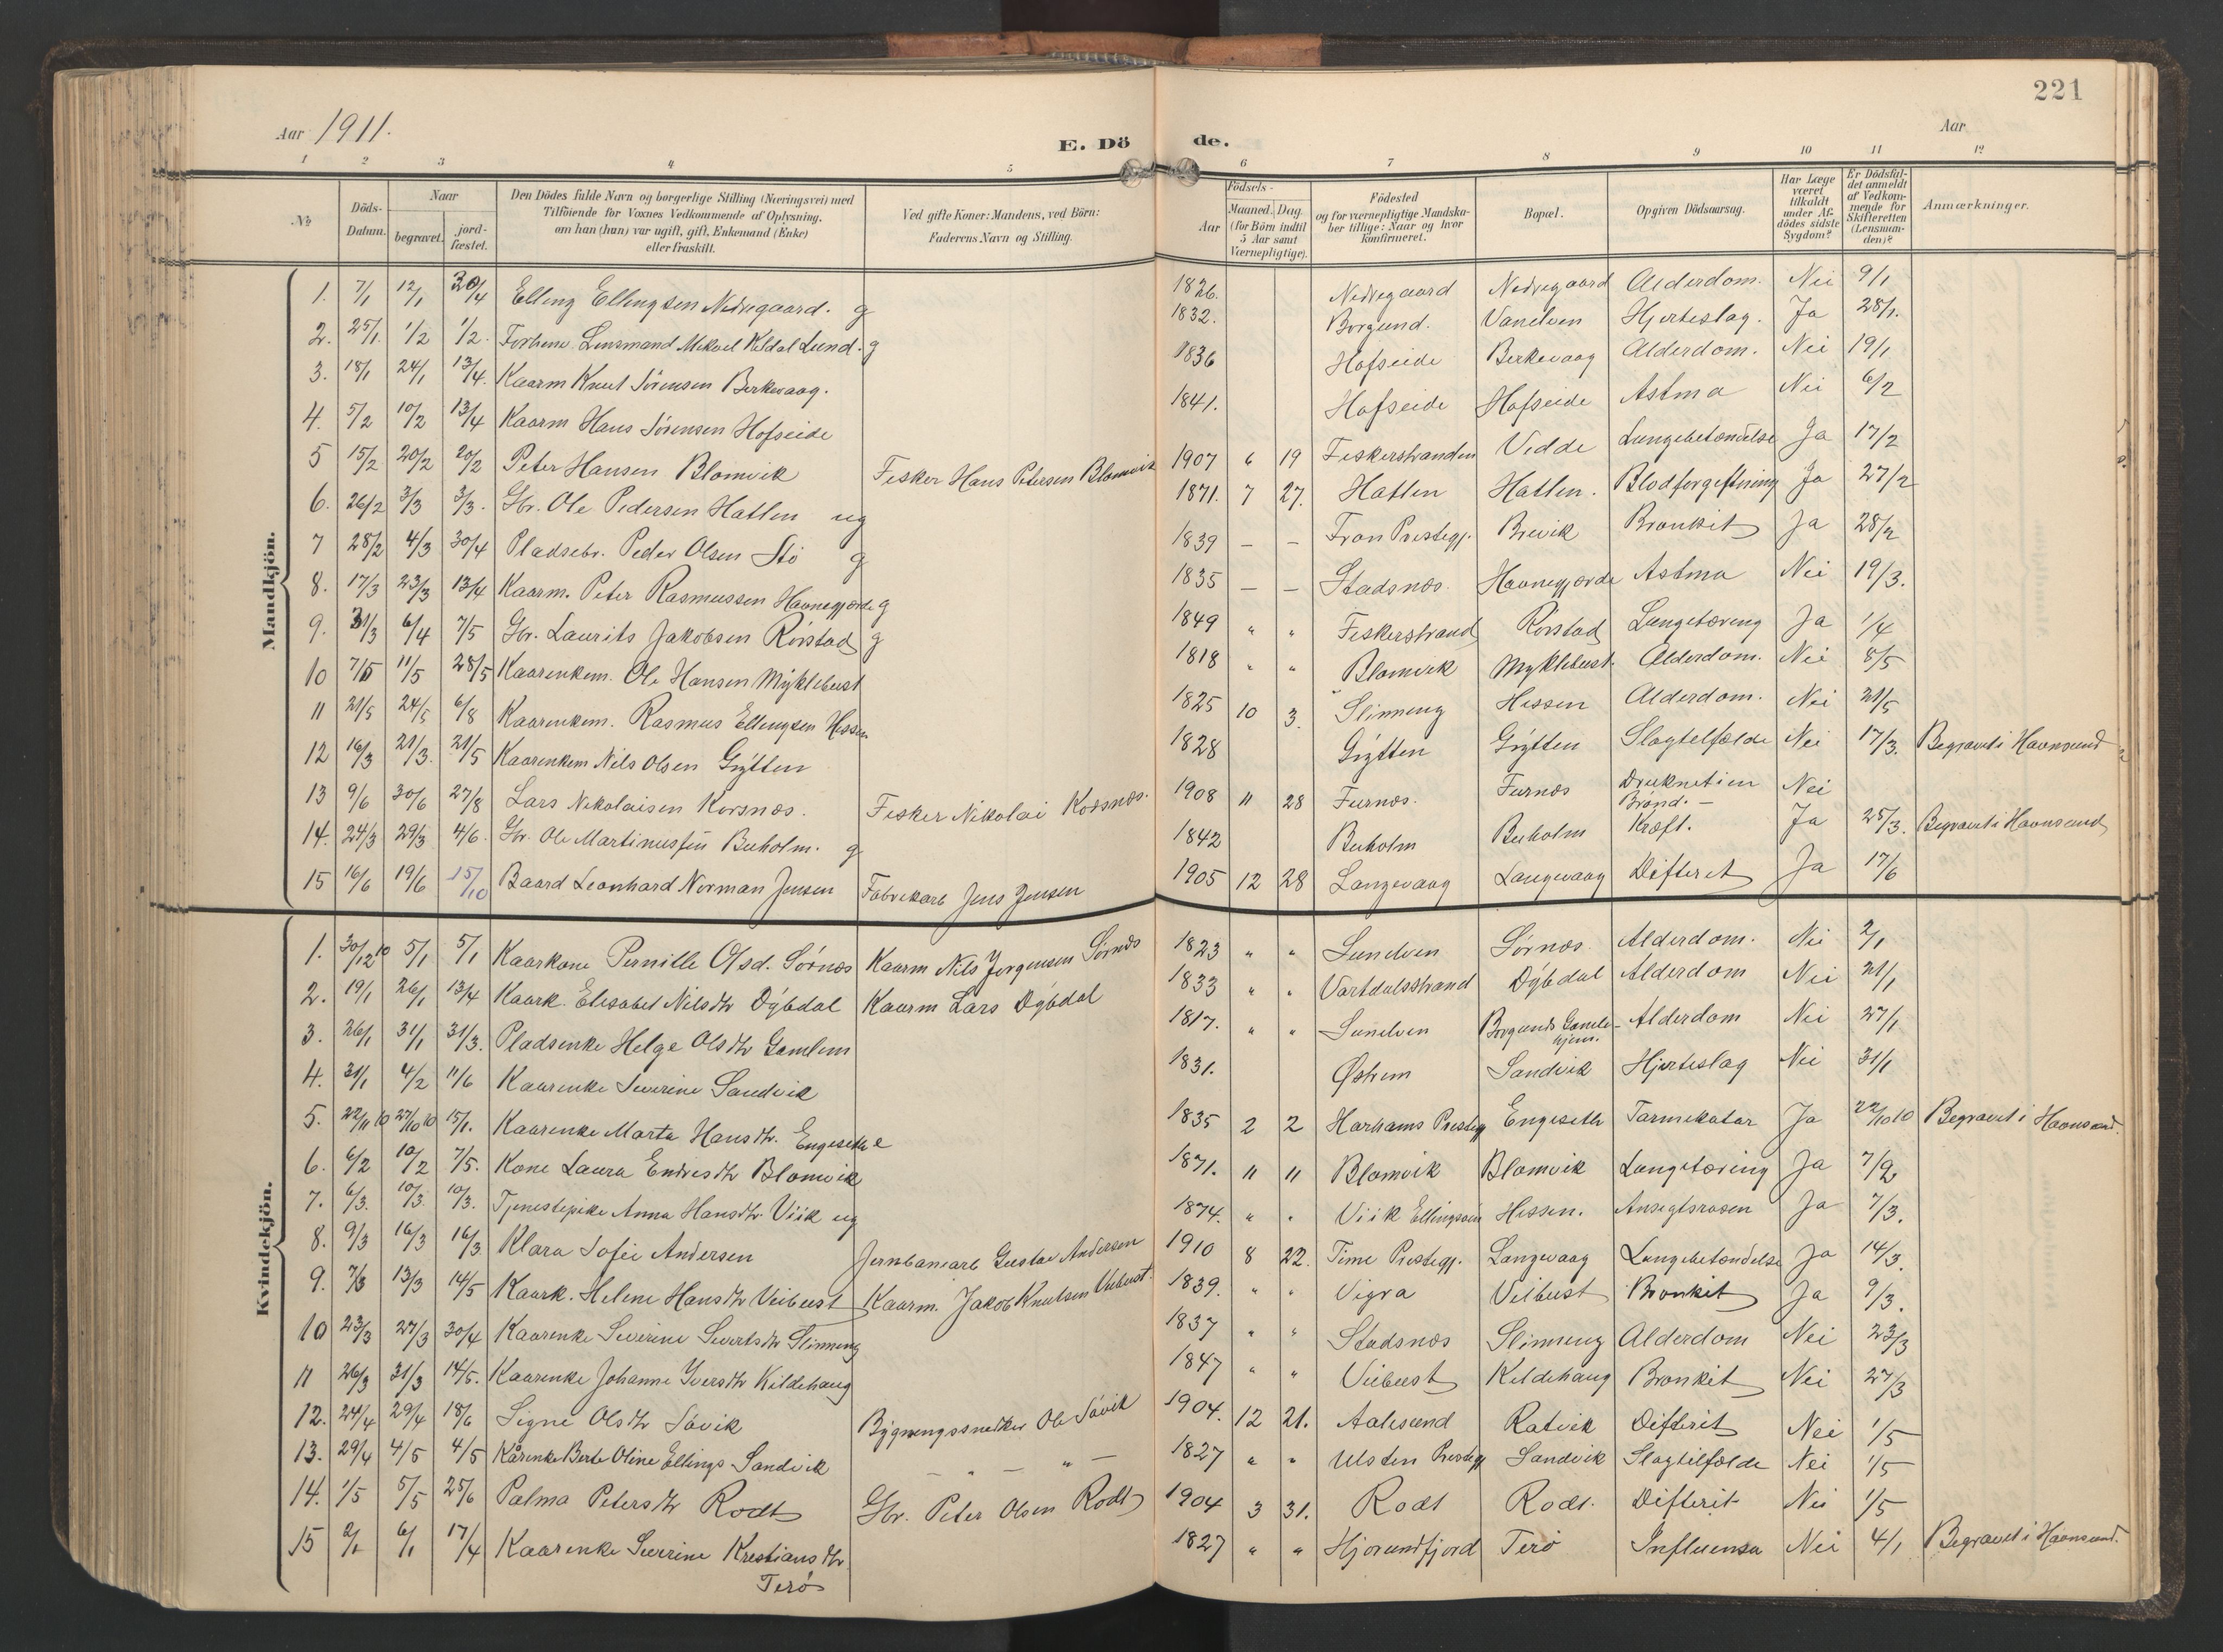 221
Aar 1911.
E. Dö de.
Aar
1 2 3 4 5 6 7 8 9 10 11 12
No
Döds-Datum.
Naar
begravet.
jord-fæstet.
Den Dödes fulde Navn og borgerlige Stilling (Næringsvei) med
Tilföiende for Voxnes Vedkommende af Oplysning,
om han (hun) var ugift, gift, Enkemand (Enke)
eller fraskilt.
Ved gifte Koner: Mandens, ved Börn:
Faderens Navn og Stilling.
Födsels-
Aar
Maaned. Dag.
(for Börn indtil
5 Aar samt
Værnepligtige).
Födested
og for værnepligtige Mandska-
ber tillige: Naar og hvor
konfirmeret.
Bopæl.
Opgiven Dödsaarsag.
Har Læge
været
tilkaldt
under Af-
dödes sidste
Sygdom?
Er Dödsfal-
det anmeldt
af Vedkom-
mende for
Skifteretten
(Lensman-
den)?
Anmærkninger.
Mandkjön.
1. 7/1 12/1 30/4 Elling Ellingsen Nedregaard. g 1826. Nedregaard Nedregaard Alderdom. Nei 9/1
2. 25/1. 1/2 1/2. Forhenv. Lensmand Mikael Kildal Lund. g 1832. Borgund. Vanelven Hjerteslag. Ja 28/1.
3. 18/1 24/1 13/4. Kaarm Knut Sörensen Berkevaag. 1836 Hofseide Berkevaag Alderdom. Nei 19/1
4. 5/2 10/2 13/4 Kaarm Hans Sörensen Hofseide 1841. Hofseide Hofseide Astma Nei 6/2
5 15/2 20/2 20/2 Peter Hansen Blomvik Fisker Hans Petersen Blomvik 1907 6 19 Fiskerstranden Vedde Lungebetændelse Ja 17/2
6. 26/2 3/3 3/3. Gbr. Ole Pedersen Hatlen ug 1871. 7 27. Hatlen Hatlen. Blodforgiftning Ja 27/2
7 28/2 4/3 30/4 Pladsebr. Peder Olsen Stö g 1839 — — Fron Prestegj. Brevik Bronkit Ja 28/2
8. 17/3 23/3 13/4 Kaarm. Peter Rasmussen Havnegjærde g 1835 — — Stadsnes. Havnegjærde Astma Nei 19/3.
9. 31/3 6/4 7/5 Gbr. Laurits Jakobsen Rörstad g 1849 " " Fiskerstrand Rörstad Lungetæring Ja 1/4
10 7/5 11/5 28/5 Kaarenkem. Ole Hansen Myklebust 1818 " " Blomvik Myklebust. Alderdom. Nei 8/5
11 21/5 24/5 6/8 Kaarenkem. Rasmus Ellingsen Hessen 1825 10 3. Slinning Hessen Alderdom. Nei 21/5
12 16/3 21/3. 21/5 Kaarenkem Nils Olsen Grÿtten 1828 Grÿtten Grÿtten Slagtelfælde Nei 17/3. Begravet i Havnsund
13 9/6 30/6 27/8 Lars Nikolaisen Korsnes. Fisker Nikolai Korsnes. 1908 11 28 Furnes. Furnes Druknet i en Brönd. — Nei
14. 24/3 29/3 4/6. Gbr. Ole Martinussen Buholm. g 1842 Buholm Buholm Kræft. Ja 25/3. Begravet i Havnsund
15 16/6 19/6 15/10 Baard Leonhard Norman Jensen Fabrikarb Jens Jensen 1905 12 28 Langevaag Langevaag Difterit Ja 17/6
Kvindekjön.
1. 30/12 10 5/1 5/1 Kaarkone Pernille Olsd. Sörnes Kaarm Nils Jörgensen Sörnes 1823 " " Sunelven Sörnes. Alderdom. Nei 2/1
2. 19/1 26/1 13/4 Kaark. Elisabet Nilsdtr Dÿbdal Kaarm Lars Dÿbdal 1833 " " Vartdalsstrand Dÿbdal Alderdom Nei 21/1
3. 26/1 31/1 31/3. Pladsenke Helge Olsdtr Gamlem 1817. " " Sunelven Borgunds Gamle-hjem. Alderdom Nei 27/1
4. 31/1 4/2 11/6 Kaarenke Severine Sandvik 1831. Østrem Sandvik Hjerteslag Nei 31/1
5. 22/11 10 27/10 10 15/1. Kaarenke Marta Hansdtr. Engeseth e 1835 2 2 Harhams Prestegj Engeseth Tarmkatar Ja 22/10 10 Begravet i Havnsund.
6. 6/2 10/2 7/5. Kone Laura Endresdtr Blomvik 1871. " " Blomvik Blomvik Lungetæring Ja 7/2
7. 6/3. 10/3. 10/3. Tjenestepike Anna Hansdtr. Viik ug 1874. " " Viik Ellingsöen Hessen. Ansigtsrosen Ja 7/3.
8. 9/3 16/3 16/3 Klara Sofie Andersen Jernbanearb Gustav Andersen 1910 8 22. Time Prestegj. Langevaag Lungebetændelse Ja 14/3.
9. 7/3 13/3 14/5 Kaark. Helene Hansdtr Veibust Kaarm. Jakob Knutsen Veibust. 1839. " " Vigra Veibust Bronkit Ja 9/3.
10 23/3 27/3 30/4 Kaarenke Severine Sivertsdtr Slinning 1837 " " Stadsnes Slinning Alderdom Nei 23/3
11 26/3 31/3 14/5. Kaarenke Johanne Iversdtr Kildehaug 1847 " " Veibust Kildehaug Bronkit Nei 27/3
12. 24/4 29/4 18/6 Signe Olsdtr Sövik Bÿgningssnedker Ole Sövik 1904. 12 21. Aalesund Ratvik Difterit Nei 1/5
13. 29/4 4/5 4/5 Kårenke Berte Oline Ellings Sandvik — " — " — 1827 " " Ulsten Prestegj Sandvik Slagtilfælde Nei 1/5
14. 1/5 5/5 25/6 Palma Petersdtr Rödt Gbr. Peter Olsen Rödt 1904 3 31. Rödt Rödt. Difterit Nei 1/5
15 2/1 6/1 17/4 Kaarenke Severine Kristiansdtr Terö 1827 " " Hjörundfjord Terö Influensa Nei 4/1 Begravet i Havnsund.